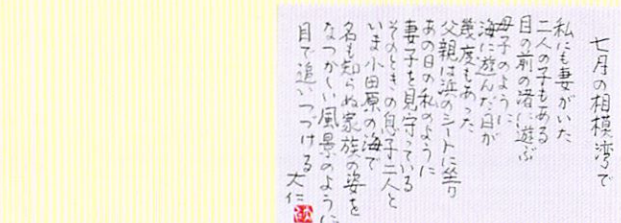 七月の相模湾で
私にも妻がいた
二人の子もある
目の前の渚に遊ぶ
母子のように
海に遊んだ日が
幾度もあった
父親は浜のシートに坐り
あの日の私のように
妻子を見守っている
そのときの息子二人と
いま小田原の海で
名も知らぬ家族の姿を
なつかしい風景のように
目で追いつづける
大仁